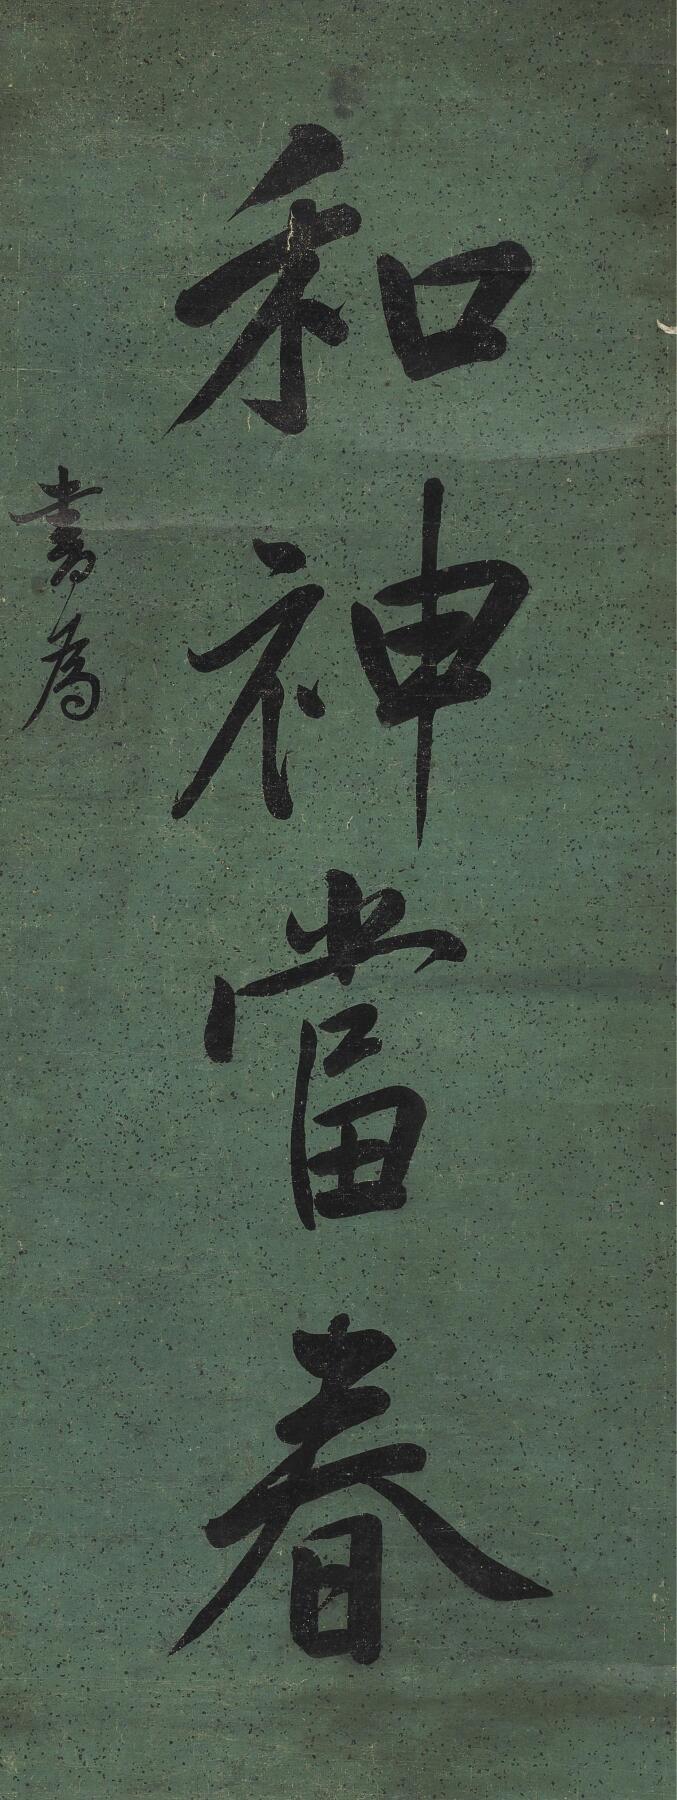 和神當春
書為